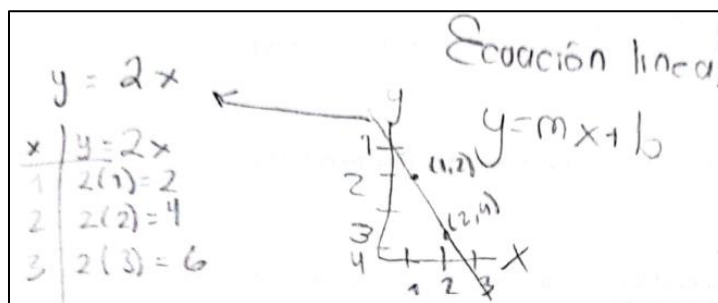 Ecuación linea
y = 2x
y=mx+b
x | y=2x
1 | 2(1)=2
2 | 2(2)=4
3 | 2(3)=6
y
1
2
3
4
(1,2)
(2,4)
1 2 3
X